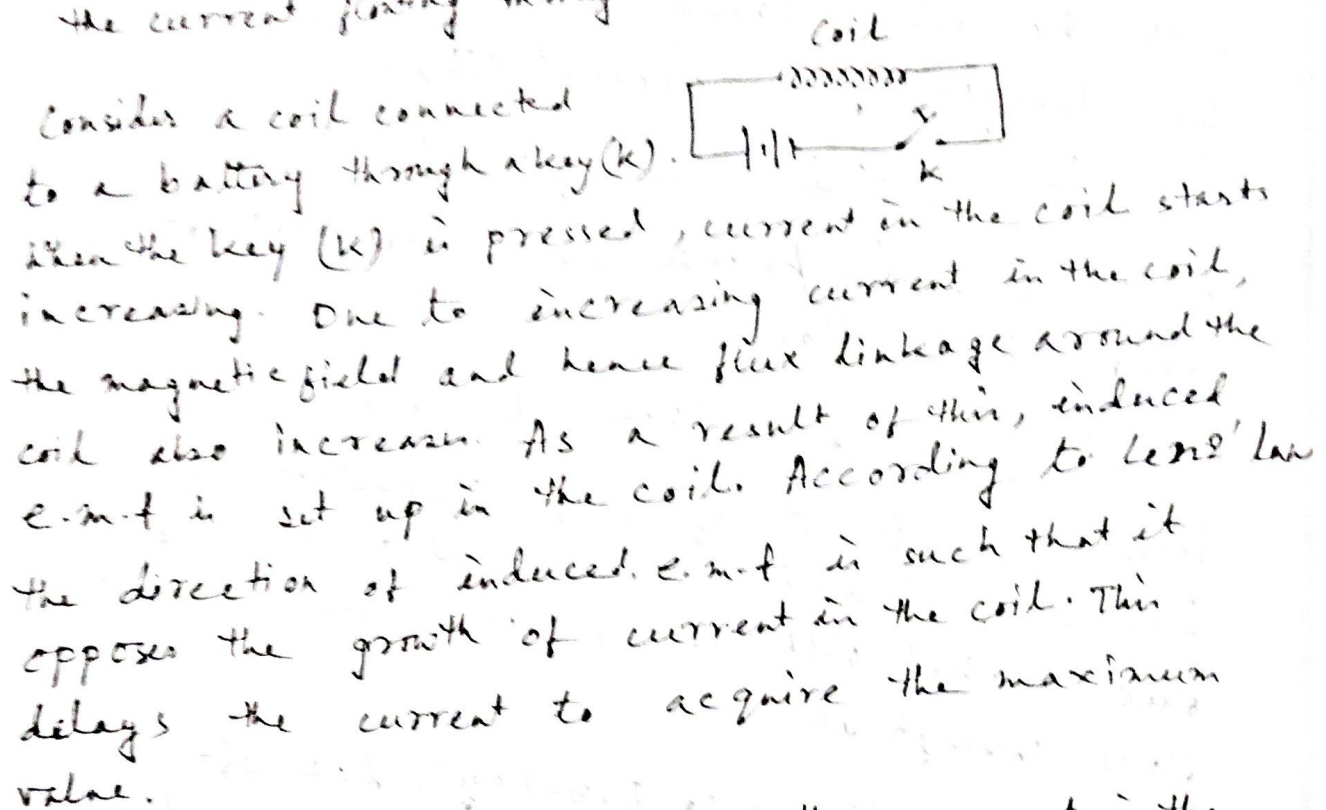 the current
Coil
Consider a coil connected
to a battery through a key (K).
K
when the key (K) is pressed, current in the coil starts
increasing. Due to increasing current in the coil,
the magnetic field and hence flux linkage around the
coil also increases. As a result of this, induced
e.m.f is set up in the coil. According to Lenz' Law
the direction of induced. e.m.f is such that it
opposes the growth of current in the coil. This
delays the current to acquire the maximum
value.
in the